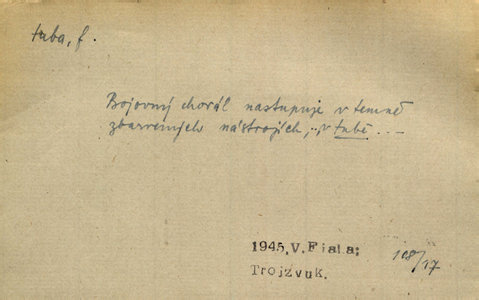 tuba, f.
Bojovný chorál nastupuje v temně
zbarvených nástrojích, .. v tubě ...
1945, V. Fiala;
Trojzvuk.
108/17